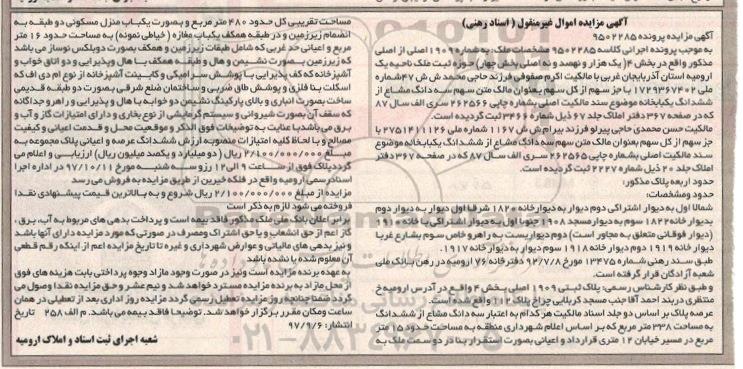 آگهی مزایده اموال غیرمنقول ( اسناد رهنی)
آگهی مزایده پرونده ۹۵۰۲۲۸۵
به موجب پرونده اجرائی کلاسه ۹۵۰۲۲۸۵ مشخصات ملک: به شماره ۱۹۰۹ اصلی از اصلی
مذکور واقع در بخش ۴ ( یک هزار و نهصد و نه اصلی بخش چهار) حوزه ثبت ملک ناحیه یک
ارومیه استان آذربایجان غربی با مالکیت اکرم صفوفی فرزند حاجی محمد ش ش ۴۷ شماره
ملی ۱۷۲۹۳۶۷۴۰۲ با جز سهم از کل سهم بعنوان مالک متن سهم سه دانگ مشاع از
ششدانگ یکبابخانه موضوع سند مالکیت اصلی بشماره چاپی ۲۶۲۵۶۶ سری الف سال ۸۷
که در صفحه ۳۶۷ دفتر املاک جلد ۶۷ ذیل شماره ۳۴۶۶ ثبت گردیده است.
مالکیت حسن محمدی حاجی پیرلو فرزند بیرام ش ش ۱۱۶۷ شماره ملی ۲۷۵۱۴۱۱۱۲۶ با
جز سهم از کل سهم بعنوان مالک متن سهم سه دانگ مشاع از ششدانگ یکبابخانه موضوع
سند مالکیت اصلی بشماره چاپی ۲۶۲۵۶۵ سری الف سال ۸۷ که در صفحه ۳۶۷ دفتر
املاک جلد ۲۰ ذیل شماره ۲۲۲۷ ثبت گردیده است.
حدود اربعه پلاک مذکور:
حدود ومشخصات:
شمالا اول به دیوار اشتراکی دوم دیوار به دیوارخانه ۱۸۲۰ شرقا اول دیوار به دیوار دوم
بدیوار خانه ۱۸۲۲ سوم به دیوار مسجد ۱۹۰۸ جنوبا اول به دیوار اشتراکی با خانه ۱۹۱۰
(دیوار فوقانی متعلق به مجاور است) دوم دیواریست به راهرو خاص سوم بشارع غربا
دیوار خانه ۱۹۱۹ دوم دیوار خانه ۱۹۱۸ سوم دیوار به دیوار خانه ۱۹۱۷.
طبق سند رهنی شماره ۱۳۴۷۵ مورخ ۹۲/۷/۸ دفترخانه ۷۶ ارومیه در رهن بانک ملی
شعبه آزادگان قرار گرفته است.
و طبق نظر کارشناس رسمی: پلاک ثبتی ۱۹۰۹ اصلی بخش ۴ واقع در آدرس ارومیه خ
منتظری دربند احمد آقا جنب مسجد کربلایی چراغ پلاک ۱۲ واقع شده است.
عرصه پلاک بر اساس دو جلد اسناد مالکیت هر کدام به اعتبار سه دانگ مشاع از ششدانگ
به مساحت ۳۳۸ متر مربع که بر اساس اعلام شهرداری منطقه به مساحت حدود ۱۵ متر
مربع در مسیر خیابان ۱۲ متری قرارداد و اعیانی بصورت استقرار بنا در دو سمت ملک به
مساحت تقریبی کل حدود ۴۸۰ متر مربع و بصورت یکباب منزل مسکونی دو طبقه به
انضمام زیرزمین و در طبقه همکف یکباب مغازه ( خیاطی نمونه) به مساحت حدود ۱۶ متر
مربع و اعیانی حد غربی که شامل طبقات زیرزمین و همکف بصورت دوبلکس نوساز می باشد
که زیرزمین بصورت نشیمن و هال و طبقه همکف با هال وپذیرایی و دو اتاق خواب و
آشپزخانه که کف پذیرایی با پوشش سرامیکی و کابینت آشپزخانه از نوع ام دی اف که
اسکلت بنا فلزی و پوشش طاق ضربی و ساختمان ضلع شرقی بصورت دو طبقه قدیمی
ساخت بصورت انباری و بالای پارکینگ نشیمن دو خوابه با هال و پذیرایی و راهرو جداگانه
که سقف آن بصورت شیروانی و سیستم گرمایشی از نوع بخاری و دارای امتیازات گاز و آب و
برق می باشد با عنایت به توضیحات فوق الذکر و موقعیت محل و قدمت اعیانی و کیفیت
مصالح و با لحاظ کلیه امتیازات منصوبه ارزش ششدانگ عرصه و اعیانی پلاک مجموعه به
مبلغ ۲/۱۰۰/۰۰۰/۰۰۰ ریال (دو میلیارد و یکصد میلیون ریال) ارزیابی و اعلام می
گردد پلاک فوق از ساعت ۹ الی ۱۲ روز سه شنبه مورخ ۹۷/۱۰/۱۱ در اداره اجرا
اسناد رسمی ارومیه واقع در فلکه خیرین از طریق مزایده به فروش می رسد
مزایده از مبلغ ۲/۱۰۰/۰۰۰/۰۰۰ ریال شروع و به بالاترین قیمت پیشنهادی نقدا
فروخته می شود لازم به ذکر است
برابر اعلان بانک ملی ملک مذکور فاقد بیمه است و پرداخت بدهی های مربوط به آب، برق،
گاز اعم از حق انشعاب و یا حق اشتراک ومصرف در صورتی که مورد مزایده دارای آنها باشد
و نیز بدهی های مالیاتی و عوارض شهرداری و غیره تا تاریخ مزایده اعم از اینکه رقم قطعی
آن معلوم شده یا نشده باشد
به عهده برنده مزایده است ونیز در صورت وجود مازاد وجوه پرداختی بابت هزینه های فوق
از محل مازاد به برنده مزایده مسترد خواهد شد و نیم عشر و حق مزایده نقدا وصول می
گردد ضمنا چنانچه روز مزایده تعطیل رسمی گردد مزایده روز اداری بعد از تعطیلی در همان
ساعت ومکان مقرر برگزار خواهد شد. توضیحا فاقد بیمه می باشد. م الف ۲۵۸ تاریخ
انتشار: ۹۷/۹/۶
شعبه اجرای ثبت اسناد و املاک ارومیه
۰۲۱-۸۸۳۴۹۶۷۰